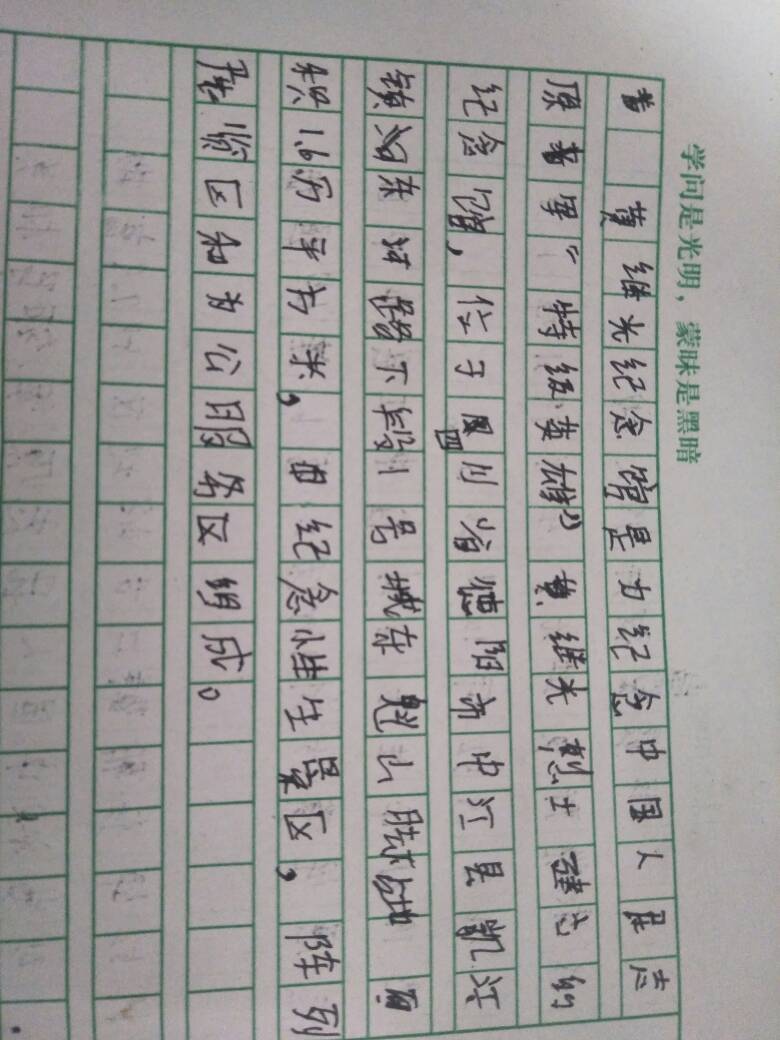 学问是光明，蒙昧是黑暗
黄继光纪念馆是为纪念中国人民志
原军“特级英雄”黄继光烈士建立的
纪念馆，位于四川省德阳市中江县凯江
镇东河路下段1号城东魁山胜地 面
积1.6万平方米，由纪念性生景区，阵列
展览区和为公用服务区组成。